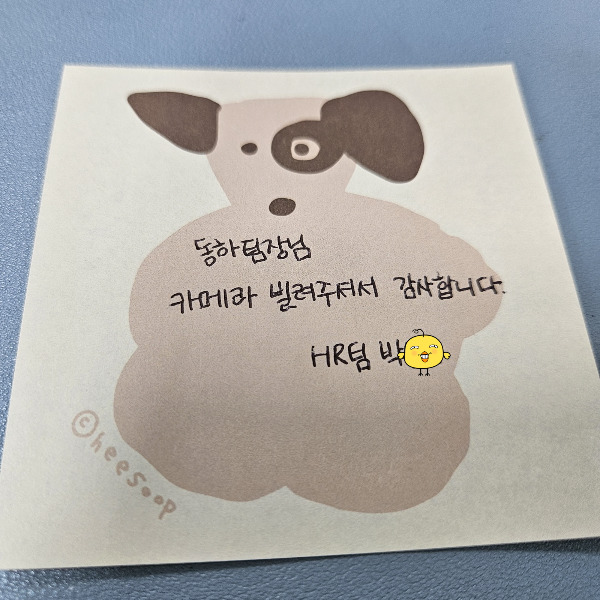 동하팀장님
카메라 빌려주셔서 감사합니다.
HR팀 박
©heesoop